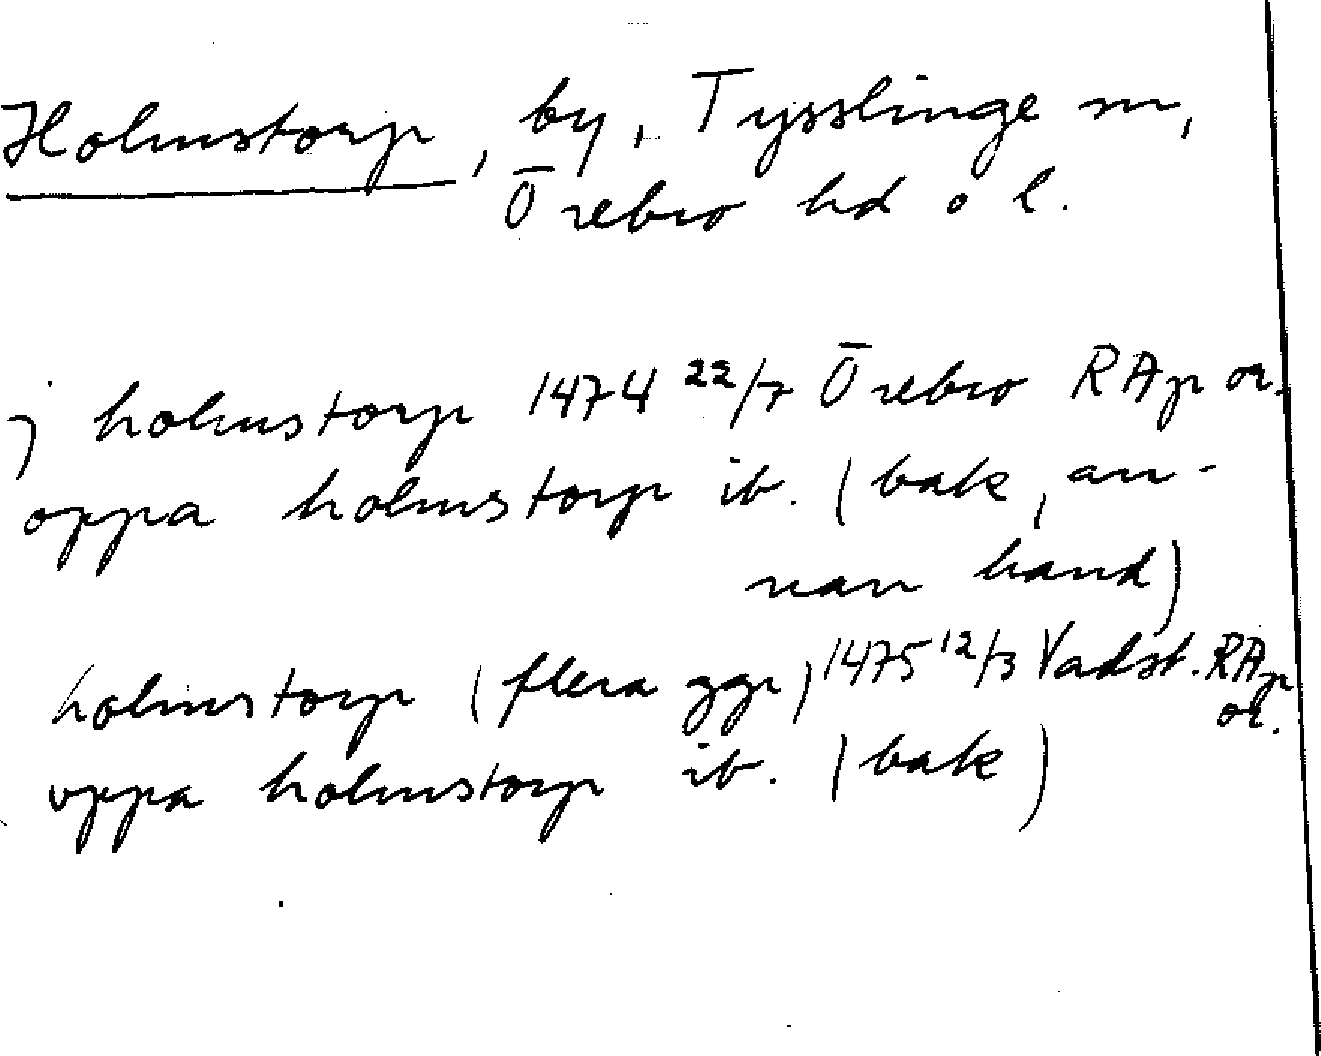 Holmstorp, by, Tysslinge sn,
Örebro hd o l.
j holmstorp 1474 22/7 Örebro RAp or.
oppa holmstorp ib. (bak, an-
nan hand)
holmstorp (flera ggr) 1475 12/3 Vadst. RAp
or.
vppa holmstorp ib. (bak)